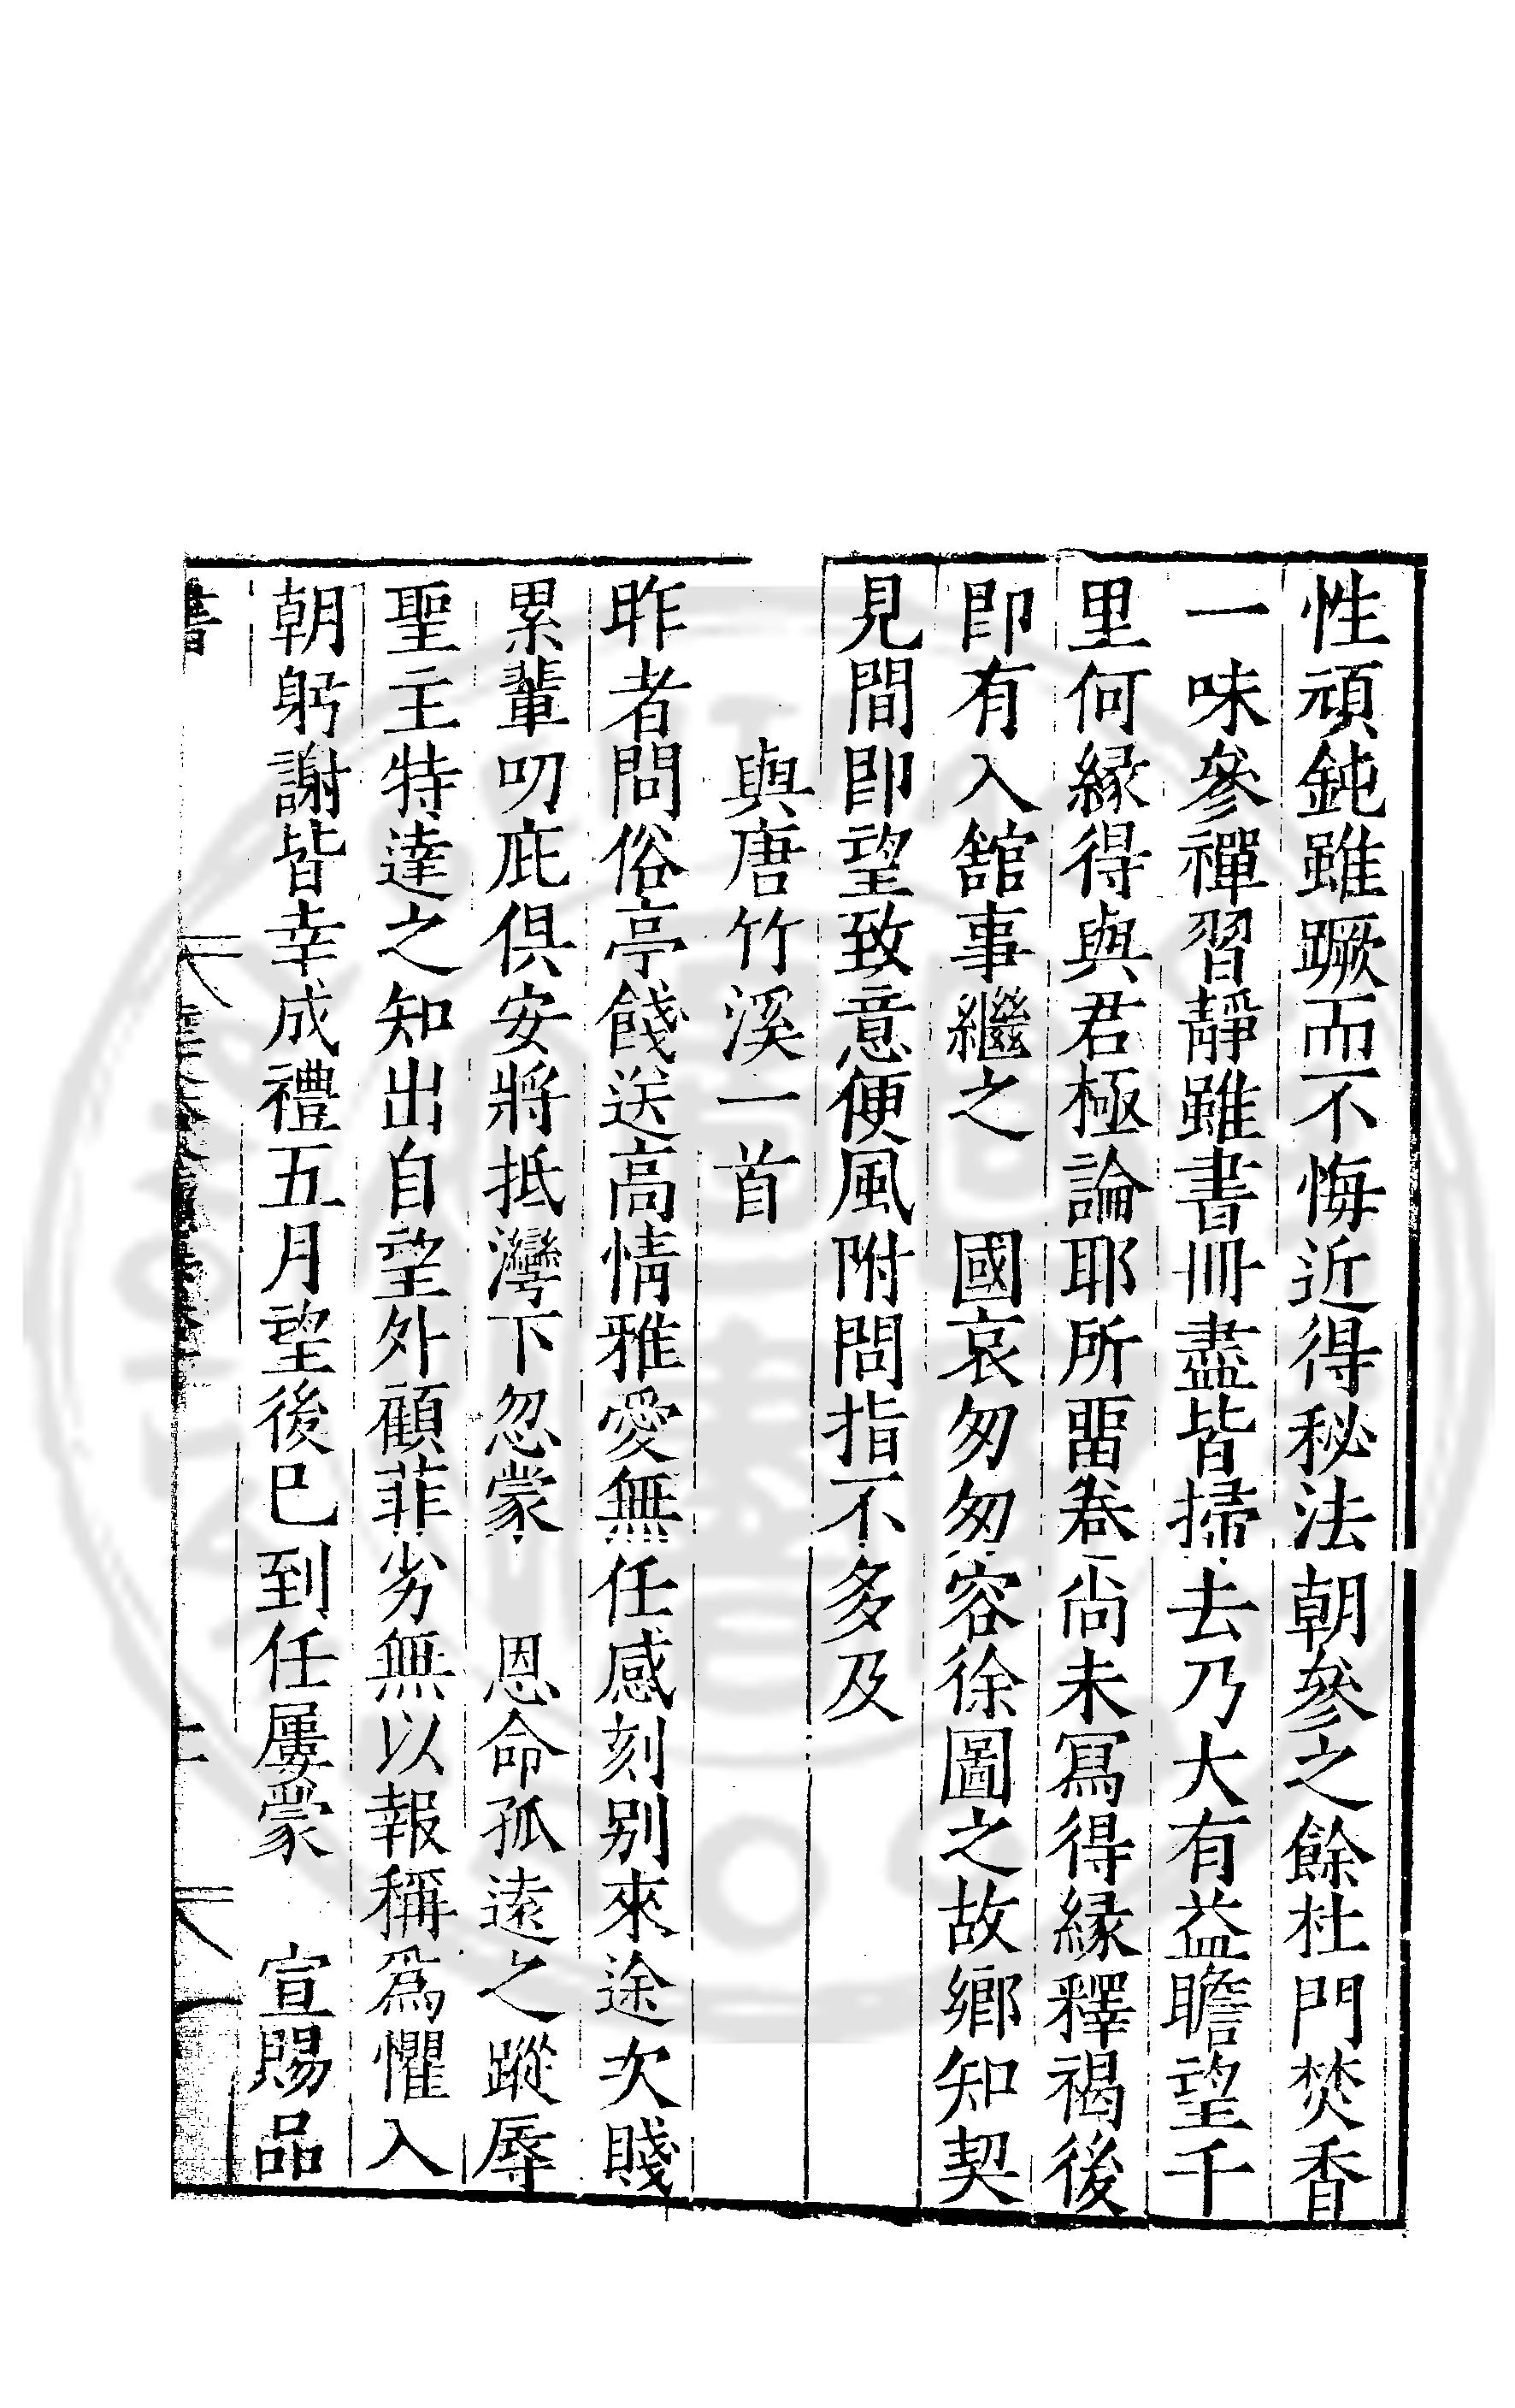 性頑鈍雖蹶而不悔近得秘法朝參之餘杜門焚香
一味參禪習靜雖書冊盡皆掃去乃大有益瞻望千
里何緣得與君極論耶所畱卷尚未寫得緣釋褐後
即有入館事繼之　國哀匆匆容徐圖之故鄉知契
見間即望致意便風附問指不多及
與唐竹溪一首
昨者問俗亭餞送高情雅愛無任感刻別來途次賤
累輩叨庇俱安將抵灣下忽蒙　恩命孤遠之蹤辱
聖主特達之知出自望外顧菲劣無以報稱爲懼入
朝躬謝皆幸成禮五月望後已到任屢蒙　宣賜品